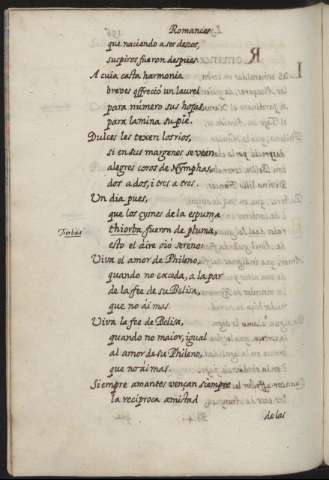 Romances
que naciendo a ser deseos,
suspiros fueron despues.
A cuia casta harmonia
breves offreció un laurel
para número sus hojas,
para lamina su pie.
Dulces les texen los rios,
si en sus margenes se veen
alegres coros de Nymphas
dos a dos, i tres a tres.
Un dia pues,
que los cysnes de la espuma
Tiorbas
thiorba fueron de pluma,
esto el aire oió sereno:
Viva el amor de Phileno,
quando no exceda, a la par
de la fee de su Belisa,
que no ái mas.
Viva la fee de Belisa,
quando no maior, igual
al amor de su Phileno,
que no ái mas.
Siempre amantes vençan siempre
la reciproca amistad
de las